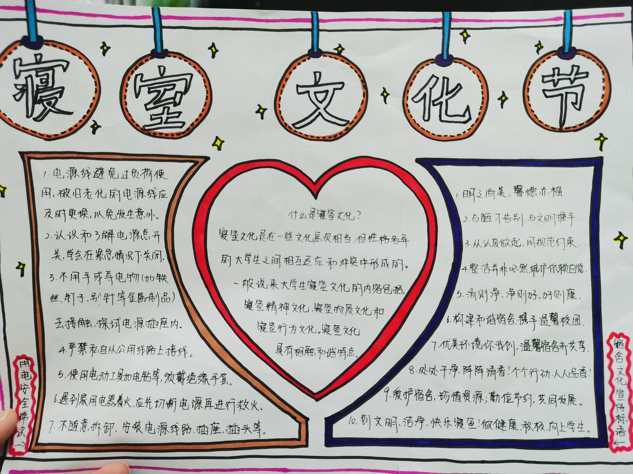 寝室文化节
1.电源线避免过负荷使
用,破旧老化的电源线应
及时更换,以免发生意外。
2.认识和了解电源总开
关,学会在紧急情况下关闭。
3.不用手或导电物(如铁
丝、钉子、别针等金属制品)
去接触、探试电源插座内。
4.严禁私自从公用线路上接线。
5.使用电动工具如电钻等,须戴绝缘手套。
6.遇到家用电器着火,应先切断电源再进行救火。
7.不随意拆卸、安装电源线路、插座、插头等。
什么是寝室文化?
寝室文化是在一些文化层次相当,但性格各异
的大学生之间相互适应和冲突中形成的。
一般说来大学生寝室文化的内容包括,
寝室精神文化,寝室物质文化和
寝室行为文化,寝室文化
具有
1.
2.与脏污告别 与文明携手
3.从认真做起,用规范约束
4.
5.
6.构建和谐宿舍,携手温馨校园.
7.优美环境你我创,温馨宿舍齐共享.
8.处处干净,阵阵清香!个个行动,人人品香!
9.爱护宿舍,珍惜资源,勤俭节约,共同发展。
10.创文明、洁净、快乐寝室!做健康、积极、向上学生。
用电安全常识
宿舍文化宣传标语